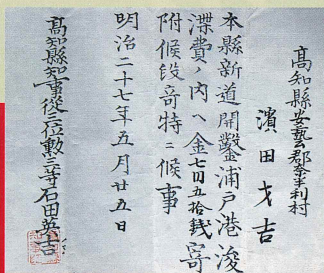 高知縣安藝郡奈半利村
濱田才吉
本縣新道開鑿浦戸港浚
渫費ノ内ヘ金七円五拾銭寄
附候段奇特ニ候事
明治二十七年五月廿五日
高知縣知事從三位勲三等石田英吉